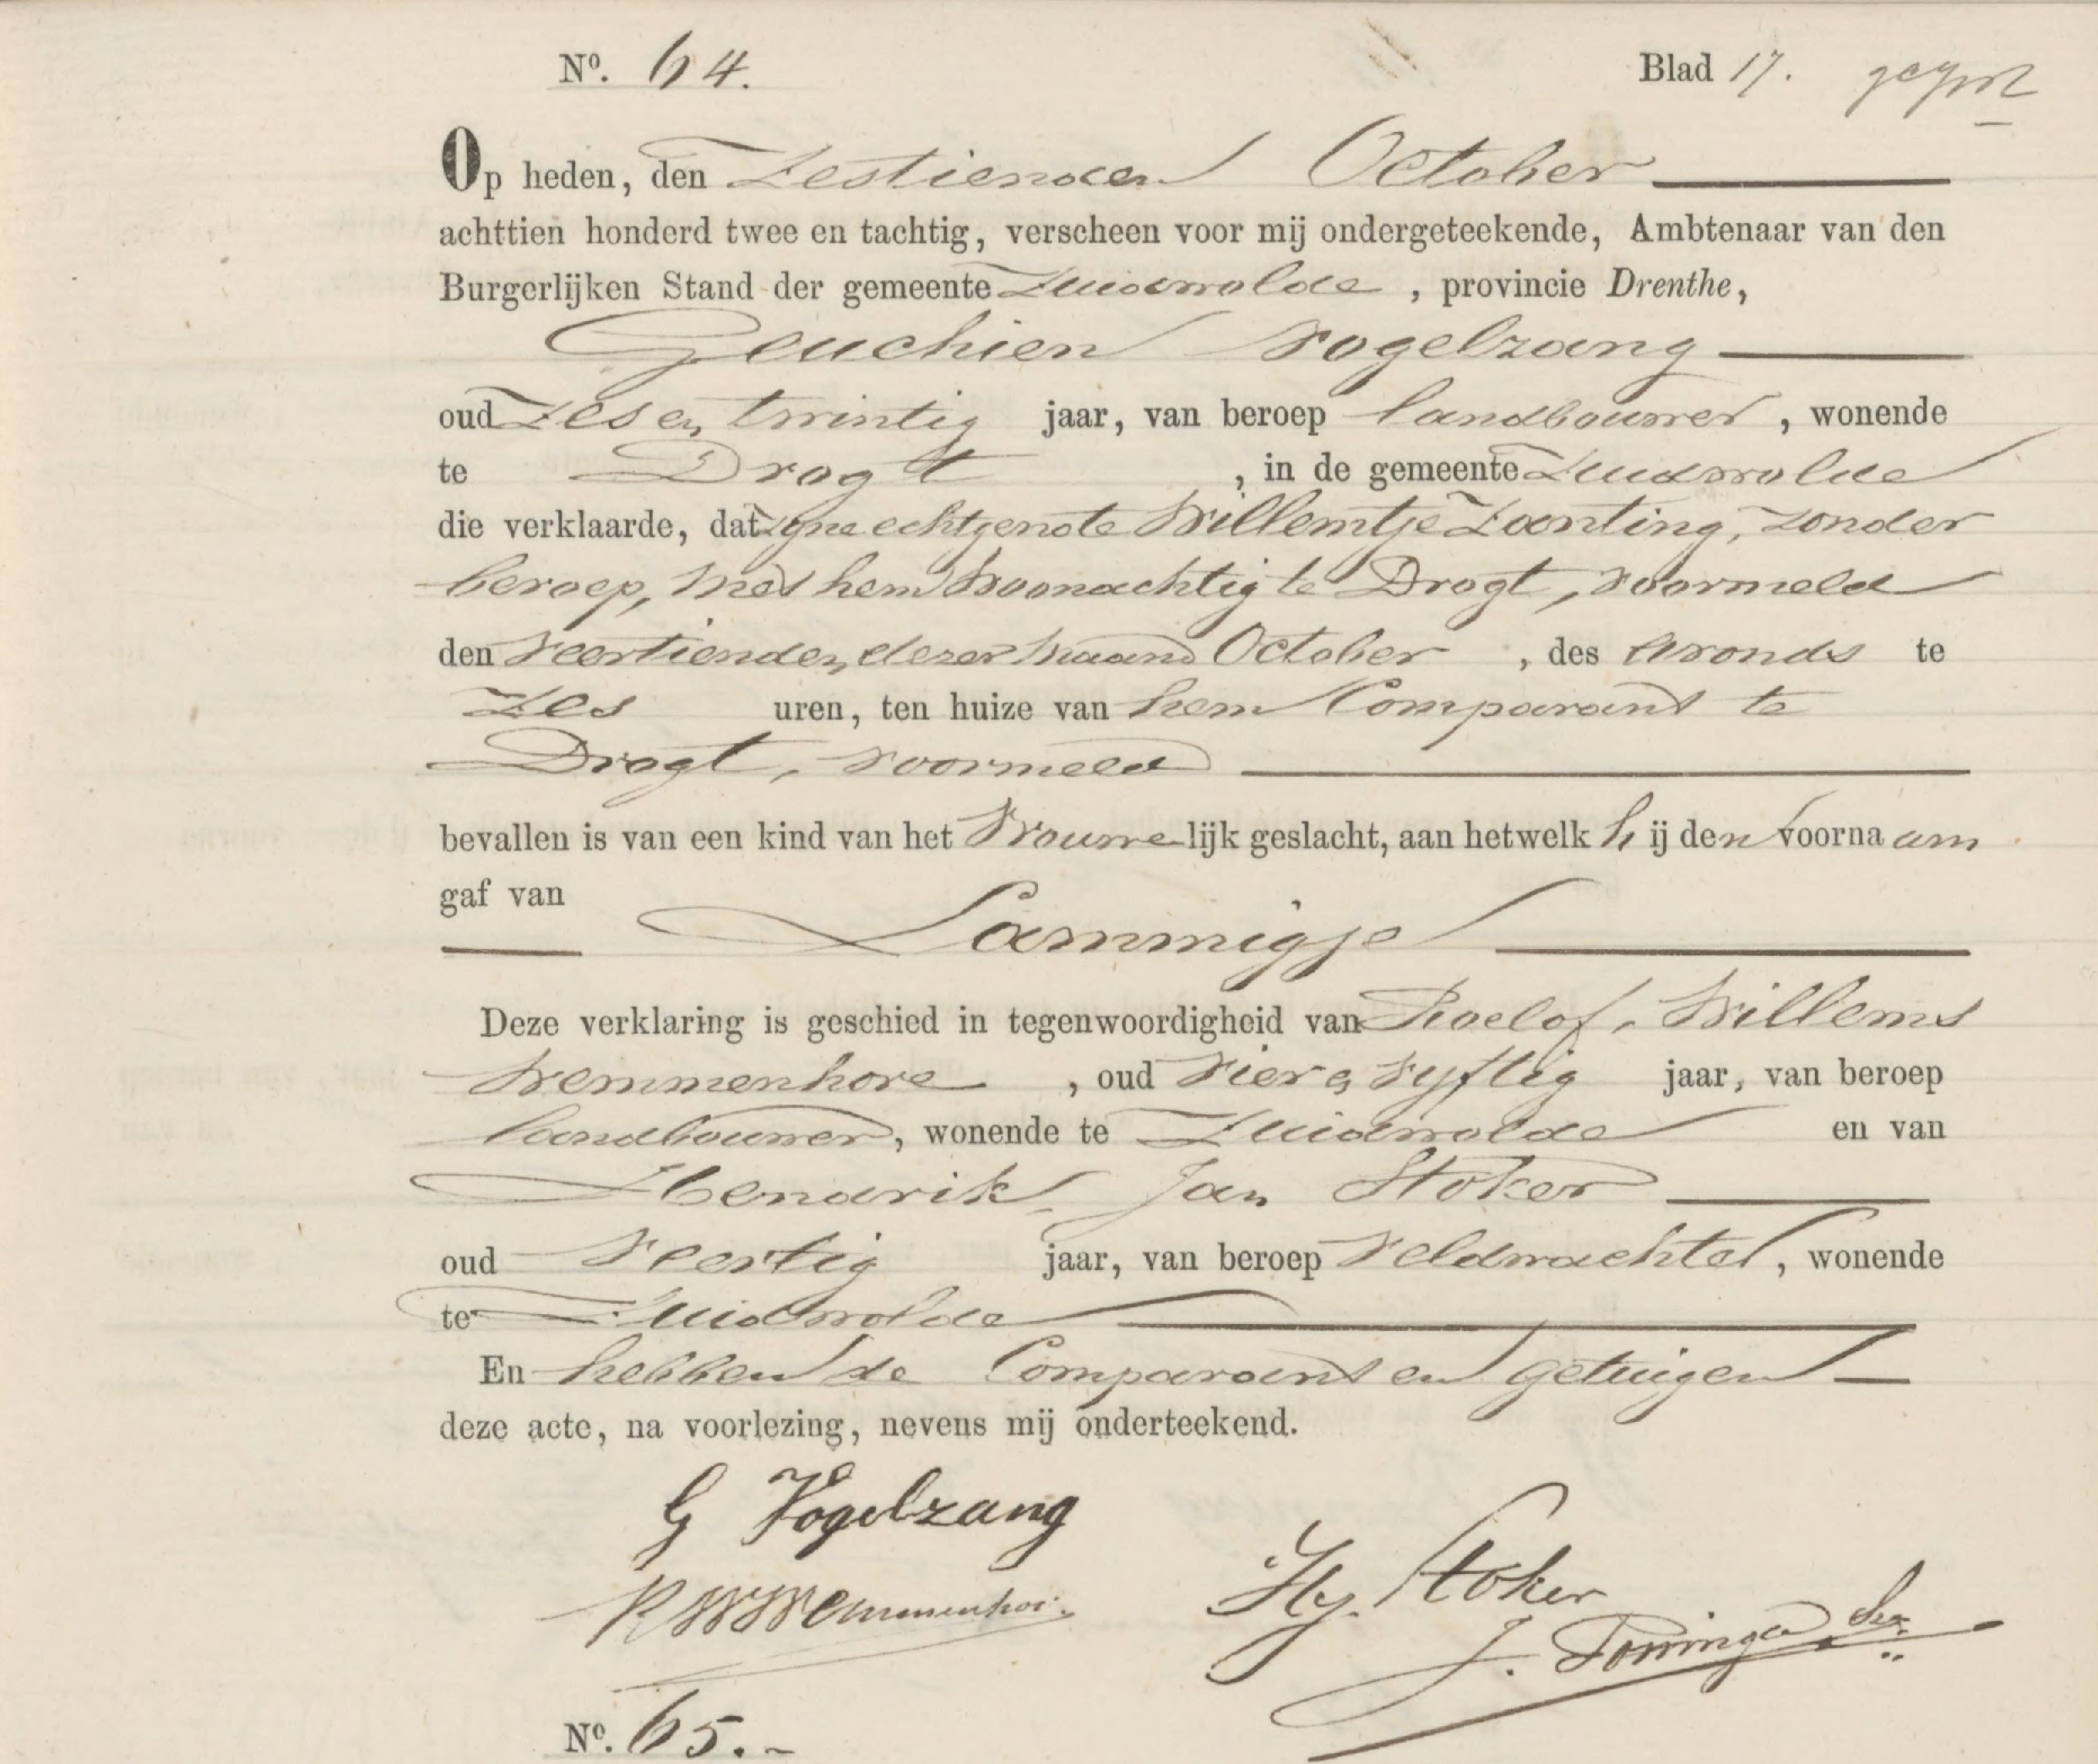 Nº. 64. Blad 17.
Op heden, den Zestienden October
achttien honderd twee en tachtig, verscheen voor mij ondergeteekende, Ambtenaar van den
Burgerlijken Stand der gemeente Zuidwolde, provincie Drenthe,
Geuchien Vogelzang
oud Zes en twintig jaar, van beroep landbouwer, wonende
te Drogt, in de gemeente Zuidwolde
die verklaarde, dat zyne echtgenote Willemtje Zanting, zonder
beroep, met hem woonachtig te Drogt, voormeld
den veertienden dezer maand October, des avonds te
Zes uren, ten huize van hem Comparant te
Drogt, voormeld
bevallen is van een kind van het Vrouwelijk geslacht, aan hetwelk hij den voornaam
gaf van
Lammigje
Deze verklaring is geschied in tegenwoordigheid van Roelof Willems
Wemmenhove, oud vier en vyftig jaar, van beroep
landbouwer, wonende te Zuidwolde en van
Hendrik Jan Stoker
oud veertig jaar, van beroep veldwachter, wonende
te Zuidwolde
En hebben de Comparant en getuigen
deze acte, na voorlezing, nevens mij onderteekend.
G Vogelzang
Hj. Stoker
R W Wemmenhove
J.
Nº. 65.-